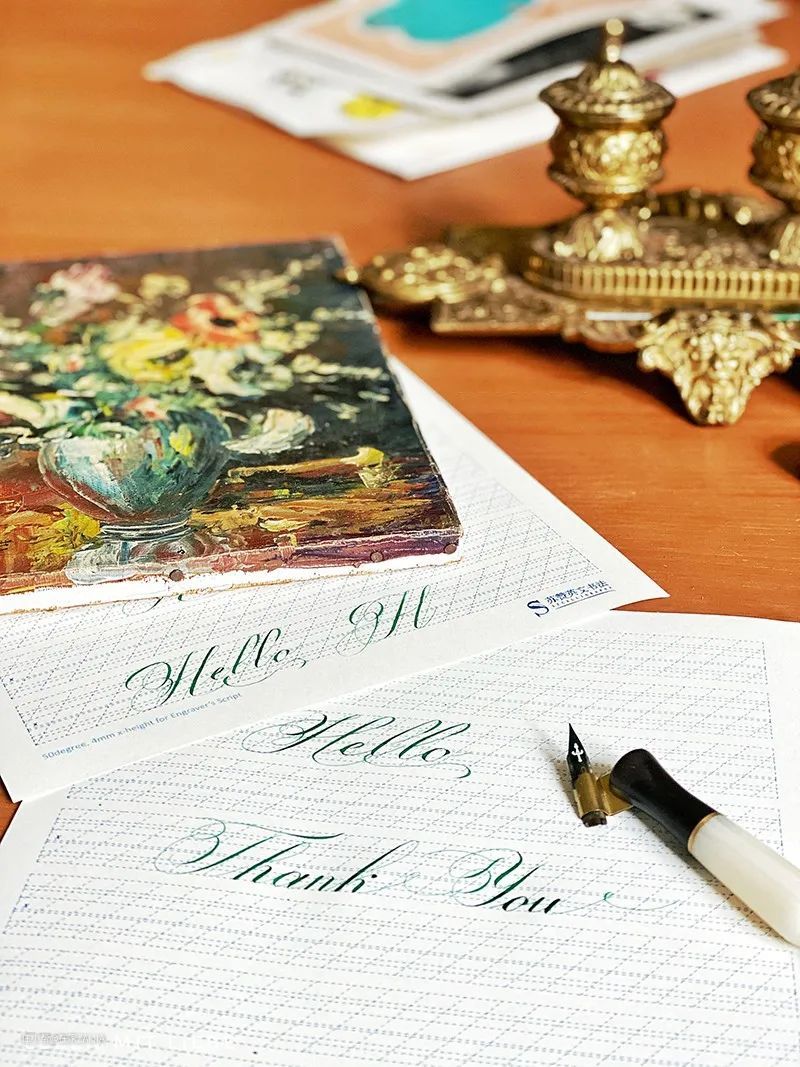 Hello H
50degree, 4mm x-height for Engraver's Script
S 苏赞英文书法
Hello
Thank You